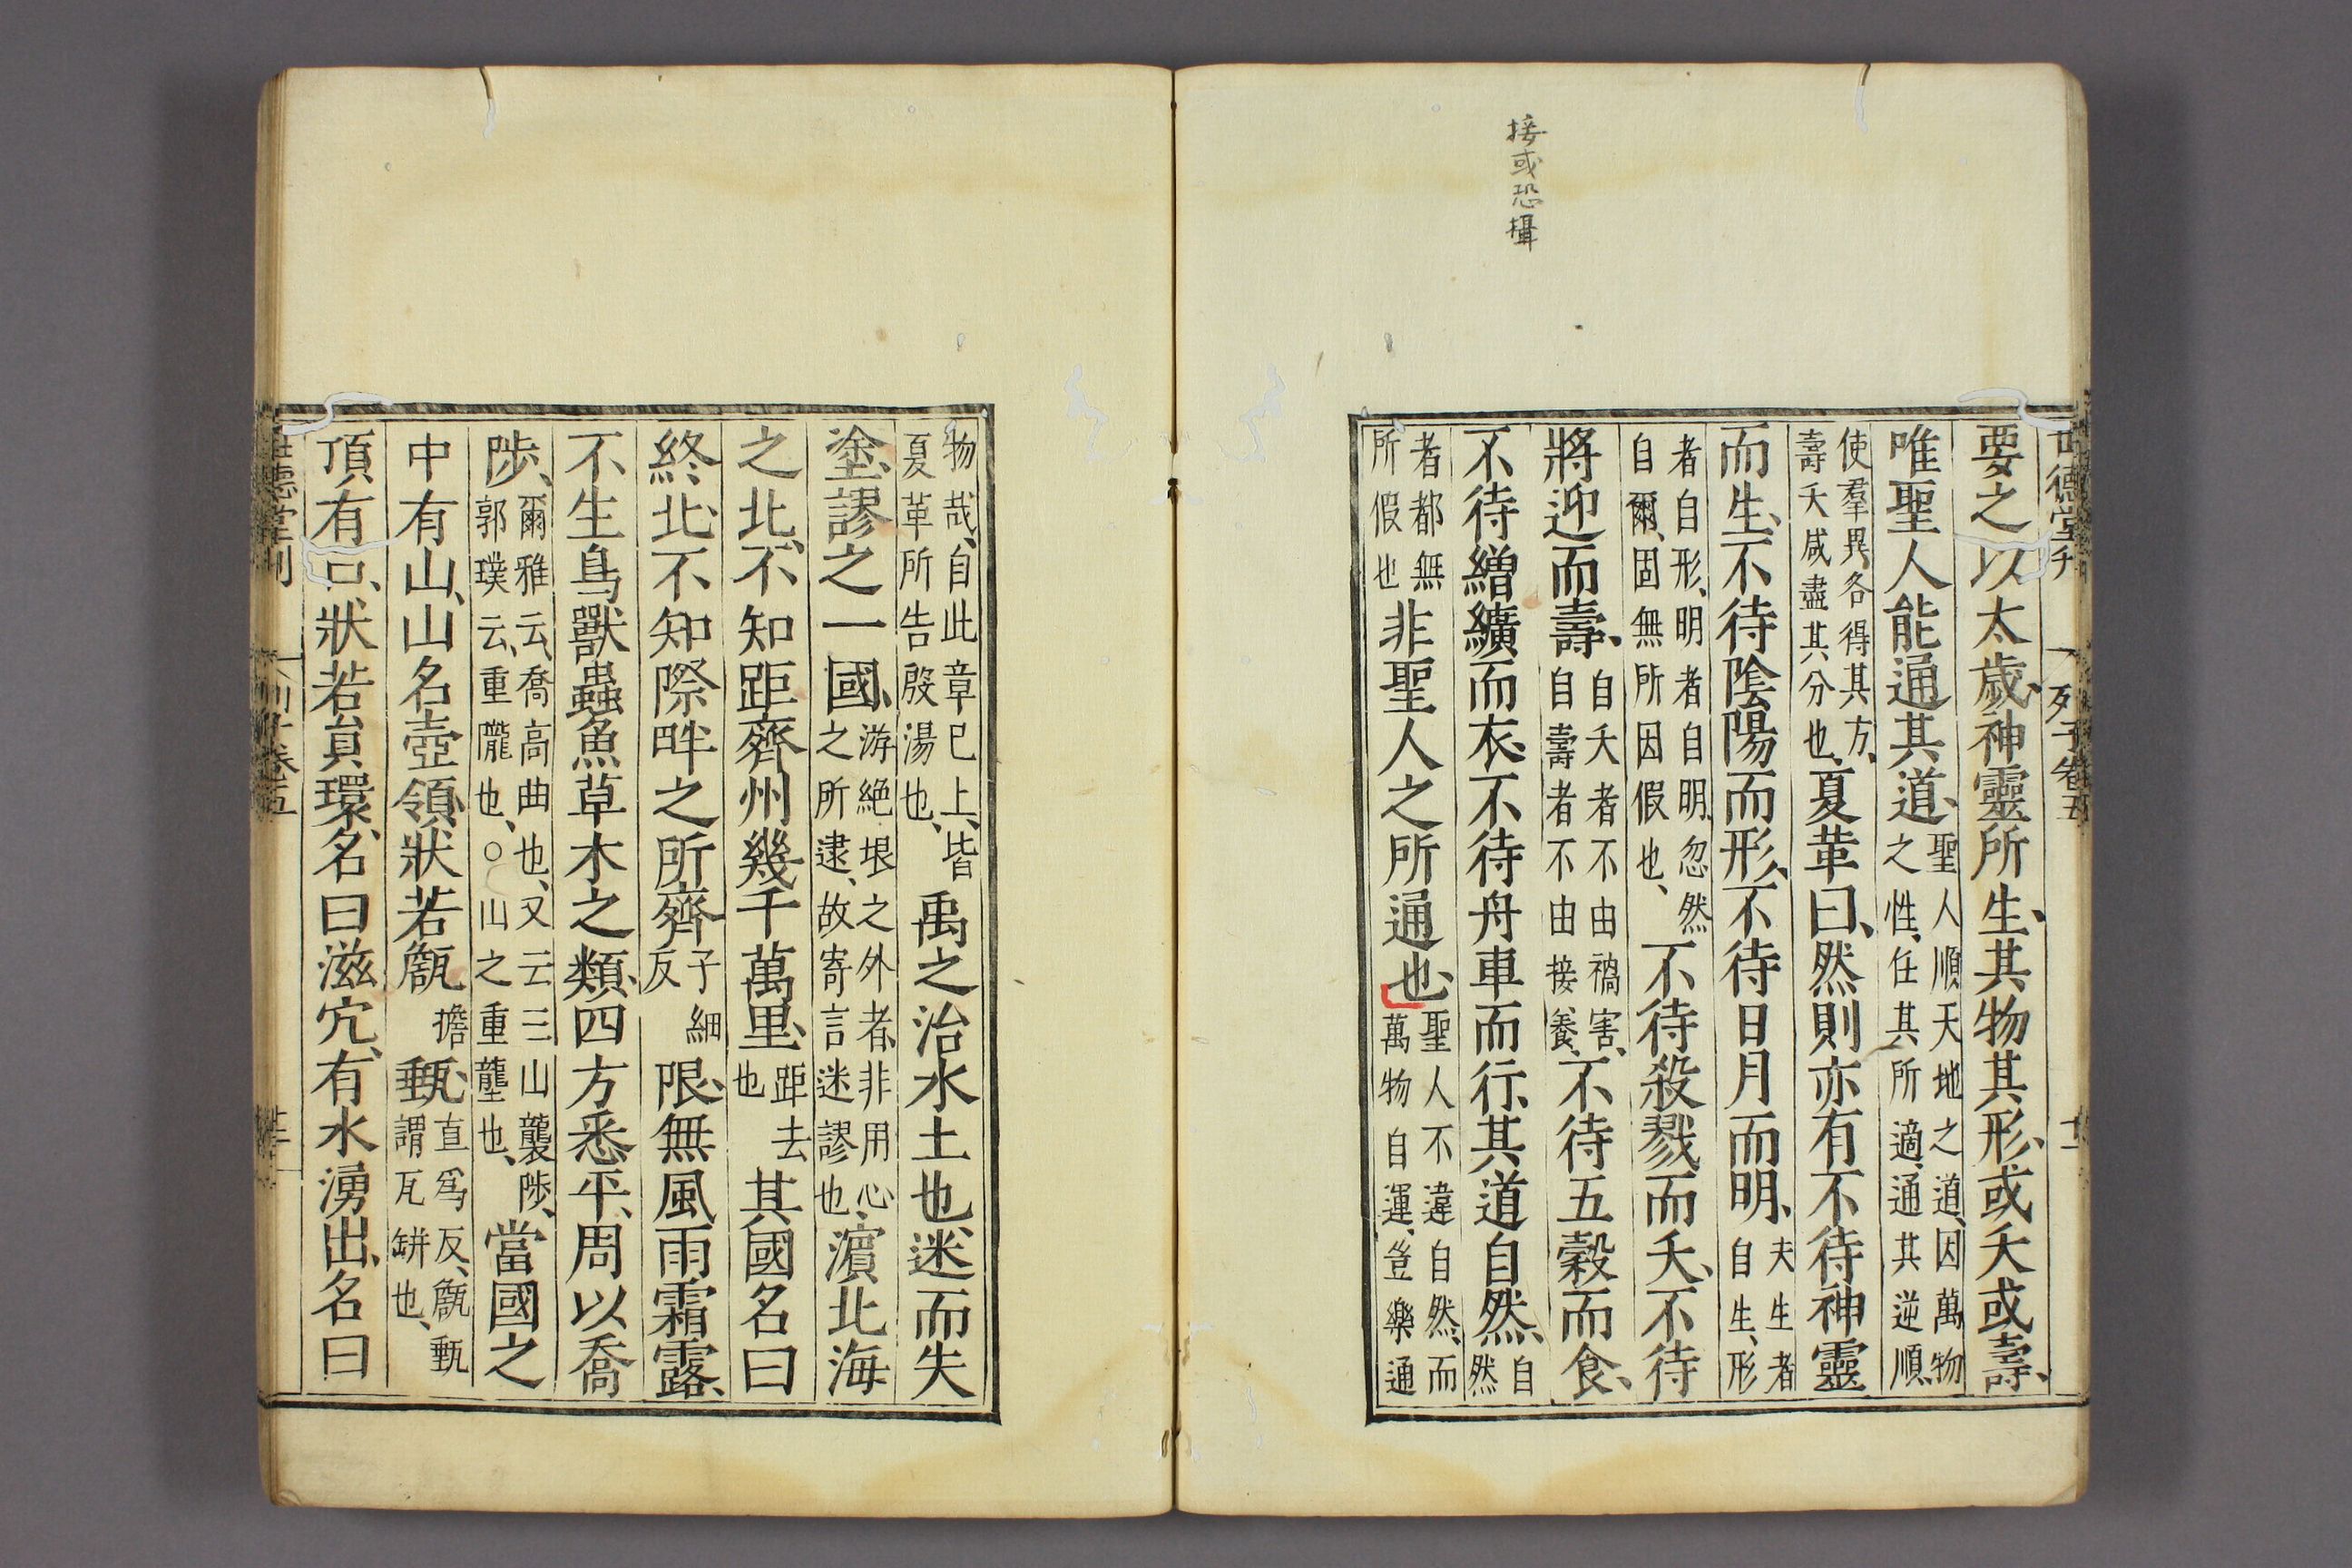 接或恐攝
世德堂刊 列子卷五 十一
要之以太歲、神靈所生、其物其形、或夭或壽、
唯聖人能通其道、聖人順天地之道、因萬物之性、任其所適、通其逆順、
使羣異各得其方、壽夭咸盡其分也、夏革曰、然則亦有不待神靈
而生、不待陰陽而形、不待日月而明、夫生者自生、形
者自形、明者自明、忽然自爾、固無所因假也、不待殺戮而夭、不待
將迎而壽、自夭者不由禍害、自壽者不由接養、不待五穀而食、
不待繒纊而衣、不待舟車而行、其道自然、自然
者都無所假也非聖人之所通也、聖人不違自然、而萬物自運、豈樂通
物哉、自此章已上、皆夏革所告殷湯也、禹之治水土也、迷而失
塗、謬之一國、游絶垠之外者、非用心之所逮、故寄言迷謬也、濵北海
之北、不知距齊州幾千萬里、距去也其國名曰
終北、不知際畔之所齊子細反限、無風雨霜露、
不生鳥獸蟲魚草木之類、四方悉平、周以喬
陟、爾雅云、喬高曲也、又云三山襲陟、郭璞云、重隴也、○山之重壟也、當國之
中有山、山名壺領、狀若甔擔甀、直爲反、甔甀謂瓦缾也、
頂有口、狀若員環、名曰滋穴、有水湧出、名曰
世德堂刊 列子卷五